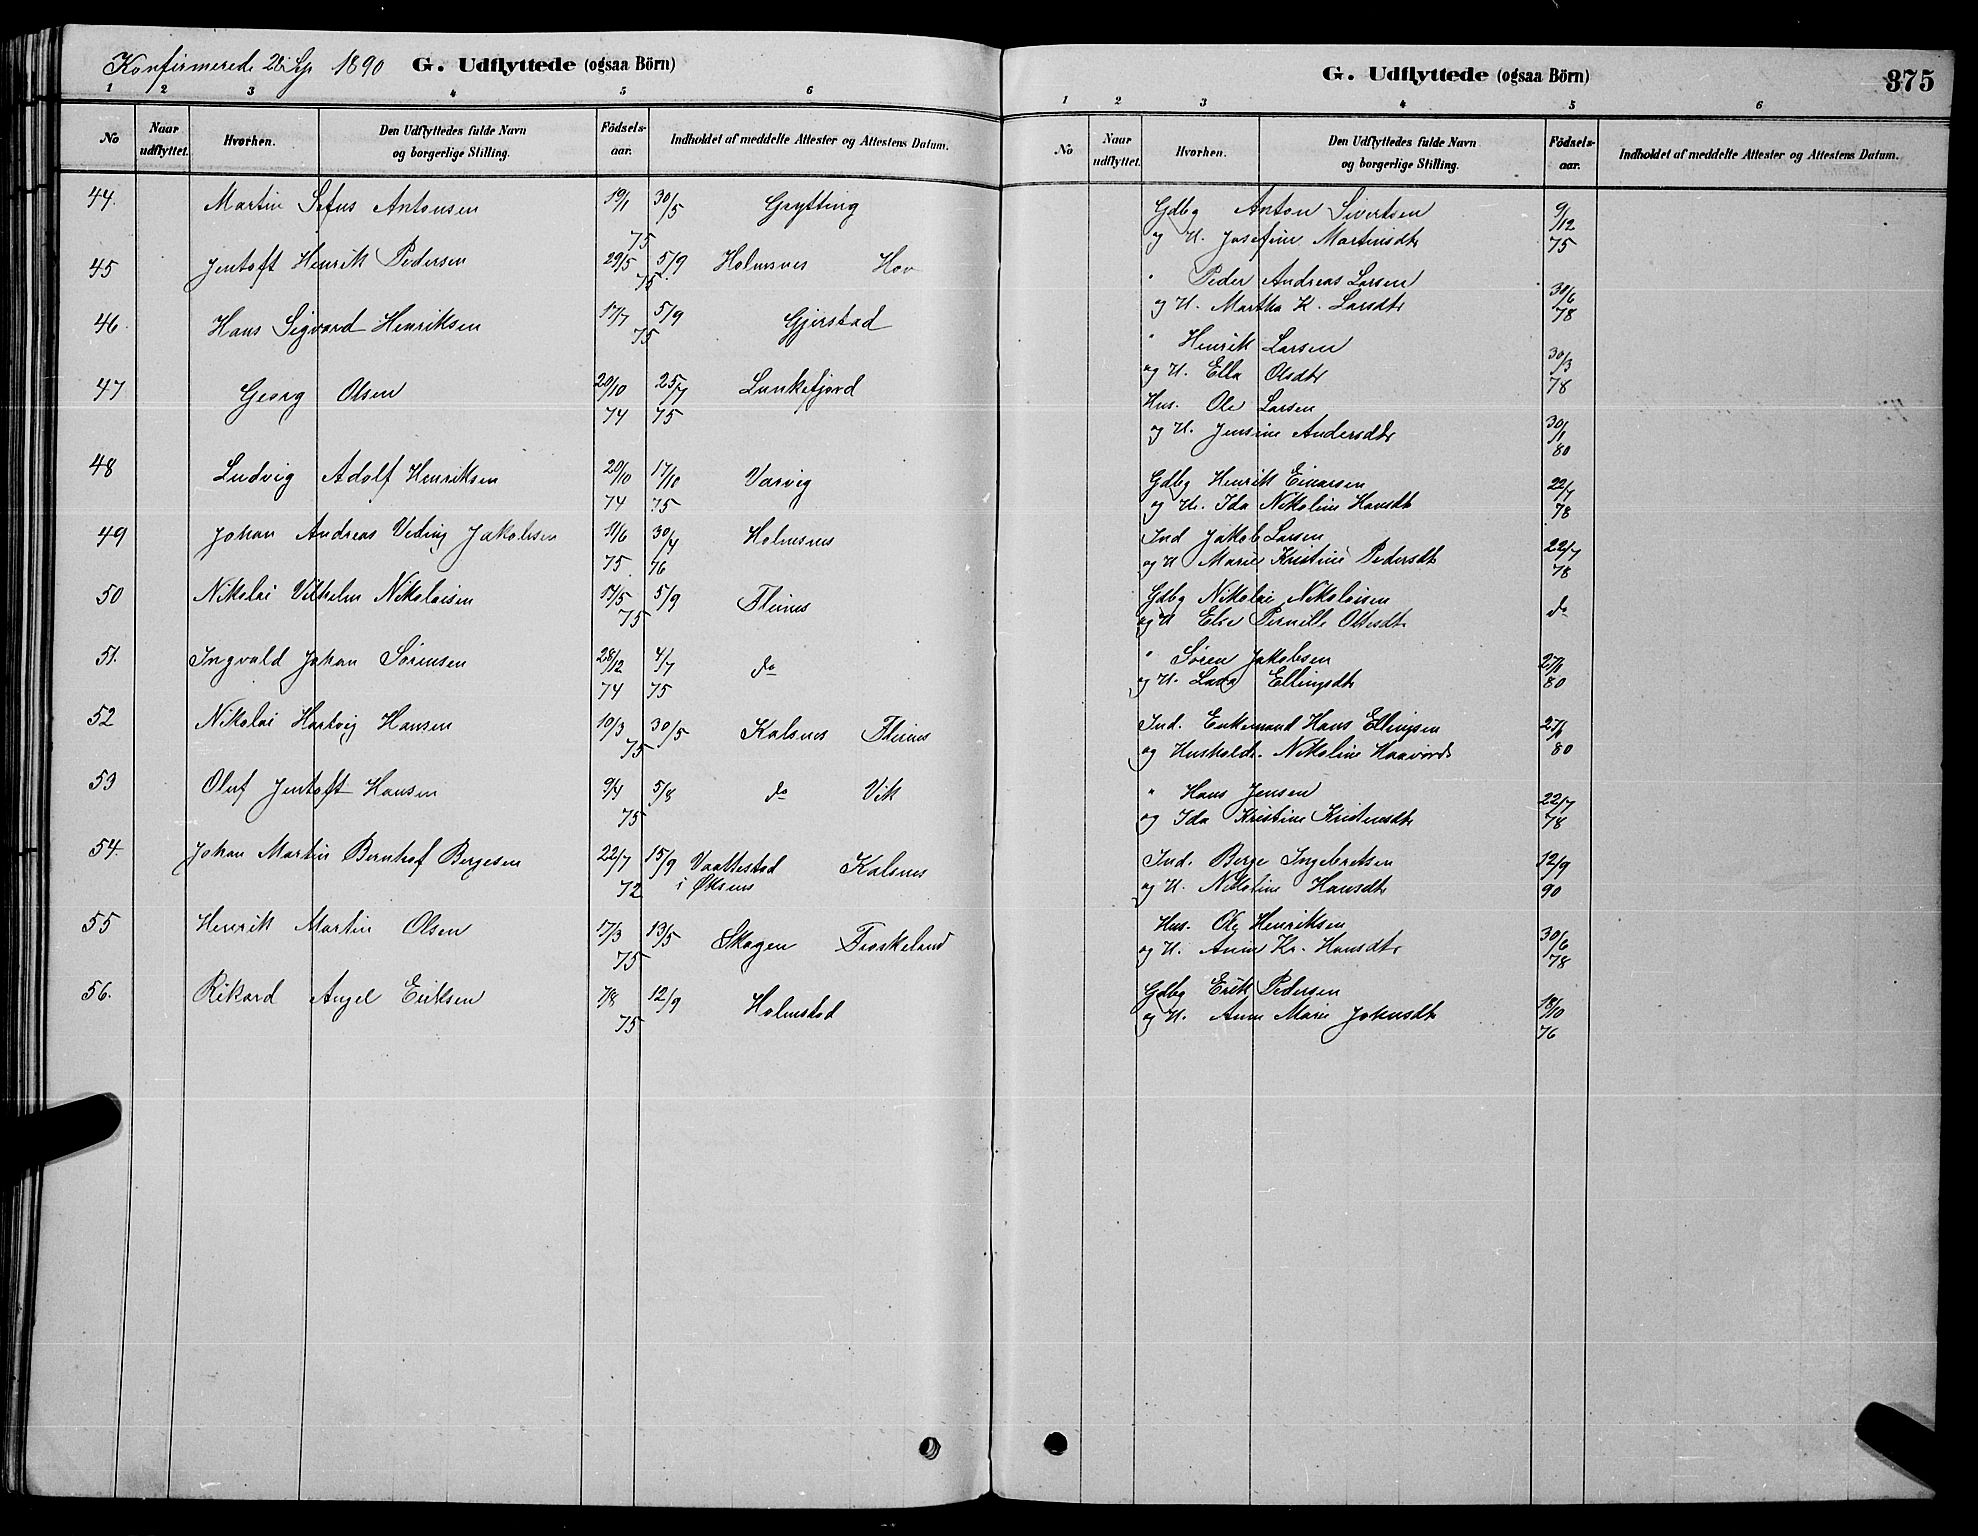 Konfirmerede 28 Sp 1890 G. Udflyttede (ogsaa Börn)
1 2 3 4 5 6
No
Naar udflyttet.
Hvorhen.
Den Udflyttedes fulde Navn og borgerlige Stilling.
Födsels-aar.
Indholdet af meddelte Attester og Attestens Datum.
44. Martin Sefus Antonsen 19/1 75 30/5 Grytting
45 Jentoft Henrik Pedersen 29/5 75. 5/9 Holmsnes Hov
46. Hans Sigvard Henriksen 17/7 75 5/9 Gjerstad
47 Georg Olsen 20/10 74 25/7 75 Lunkefjord
48 Ludvig Adolf Henriksen 20/10 74 17/10 75 Varvig
49 Johan Andreas Jakobsen 11/6 75. 30/4 76 Holmsnes
50 Nikolai Vilhelm Nikolaisen 14/5 75 5/9 Fleines
51. Ingvald Johan Sörensen 28/12 74 4/7 75 do
52 Nikolai Hartvig Hansen 10/3 75 30/5 Kalsnes Fleines
53 Oluf Jentoft Hansen 9/4 75 5/8 do Vik
54. Johan Martin Bernhof Bergesen 22/7 72 15/9 i Øksnes Kalsnes
55 Henrik Martin Olsen 17/3 75 13/5 Skagen Froskeland
56. Rikard Angel Eriksen 7/8 75 12/9 Holmstad
G. Udflyttede (ogsaa Börn) 375
1 2 3 4 5 6
No
Naar udflyttet.
Hvorhen.
Den Udflyttedes fulde Navn og borgerlige Stilling.
Födsels-aar.
Indholdet af meddelte Attester og Attestens Datum.
Gdbg Anton Sivertsen 9/12
og H. Josefine Martinsdtr 75
" Peder Andreas Larsen
og H. Martha K. Larsdtr 30/6 78
" Henrik Larsen
og H. Ella Olsdtr 30/3 78
Hus. Ole Larsen
og H. Jensine Andersdtr 30/1 80
Gdbg Henrik Einarsen 22/7
og H. Ida Nikoline Hansdtr 78
Ind Jakob Larsen
og H Marie Kristine Pedersdtr 22/7 78
Gdbg Nikolai Nikolaisen do
og H Elise Pernille Olsdtr
" Sören Jakobsen
og H. Ellingsdtr 80
Ind. Enkemand Hans Ellingsen
og Husholdr. Nikoline Haavords 80
" Hans Jensen
og Ida Kristine 22/7 78
Ind. Berge Ingebretsen 12/9
og H. Nikoline Hansdtr 90
Hus. Ole Henriksen
og H. Anne Kr. Hansdtr 30/6 78
Gdbg Erik Pedersen
og H. Anne Marie Johnsdtr 18/10 76